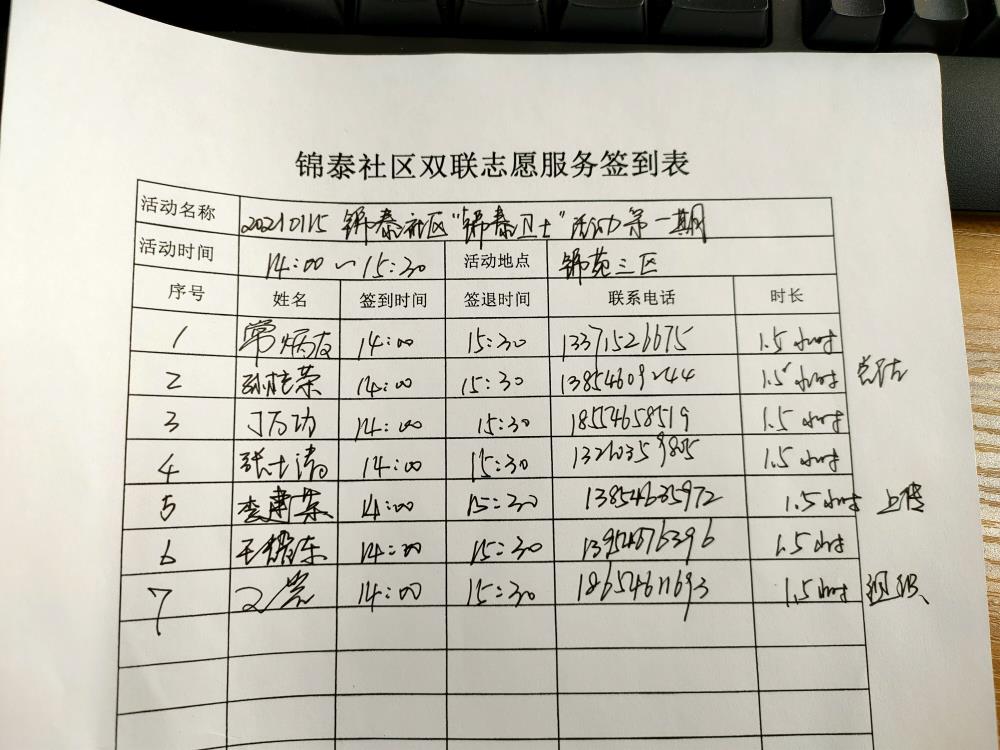 锦泰社区双联志愿服务签到表
活动名称 20210115 锦泰社区“锦泰卫士”活动第一期
活动时间 14:00~15:30 活动地点 锦苑三区
序号 姓名 签到时间 签退时间 联系电话 时长
1 常炳友 14:00 15:30 13371526675 1.5小时
2 孙桂荣 14:00 15:30 13854609244 1.5小时 总结
3 丁万功 14:00 15:30 18554658519 1.5小时
4 张士涛 14:00 15:30 13210359805 1.5小时
5 李建荣 14:00 15:30 13854635972 1.5小时 上传
6 王耀东 14:00 15:30 13954676396 1.5小时
7 14:00 15:30 18654611693 1.5小时 组织